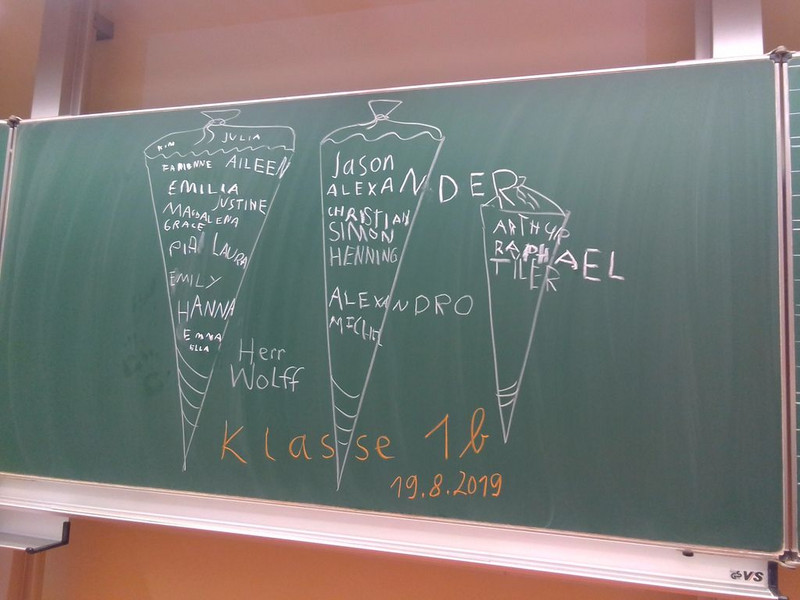 KIM JULIA
FABIENNE AILEEN
EMILIA
JUSTINE
MAGDALENA
GRACE
PIA LAURA
EMILY
HANNA
EMMA
ELLA
Herr
Wolff
Jason
ALEXANDER
CHRISTIAN
SIMON
HENNING
ALEXANDRO
MICHEL
ARTHUR
RAPHAEL
TILER
Klasse 1b
19.8.2019
VS